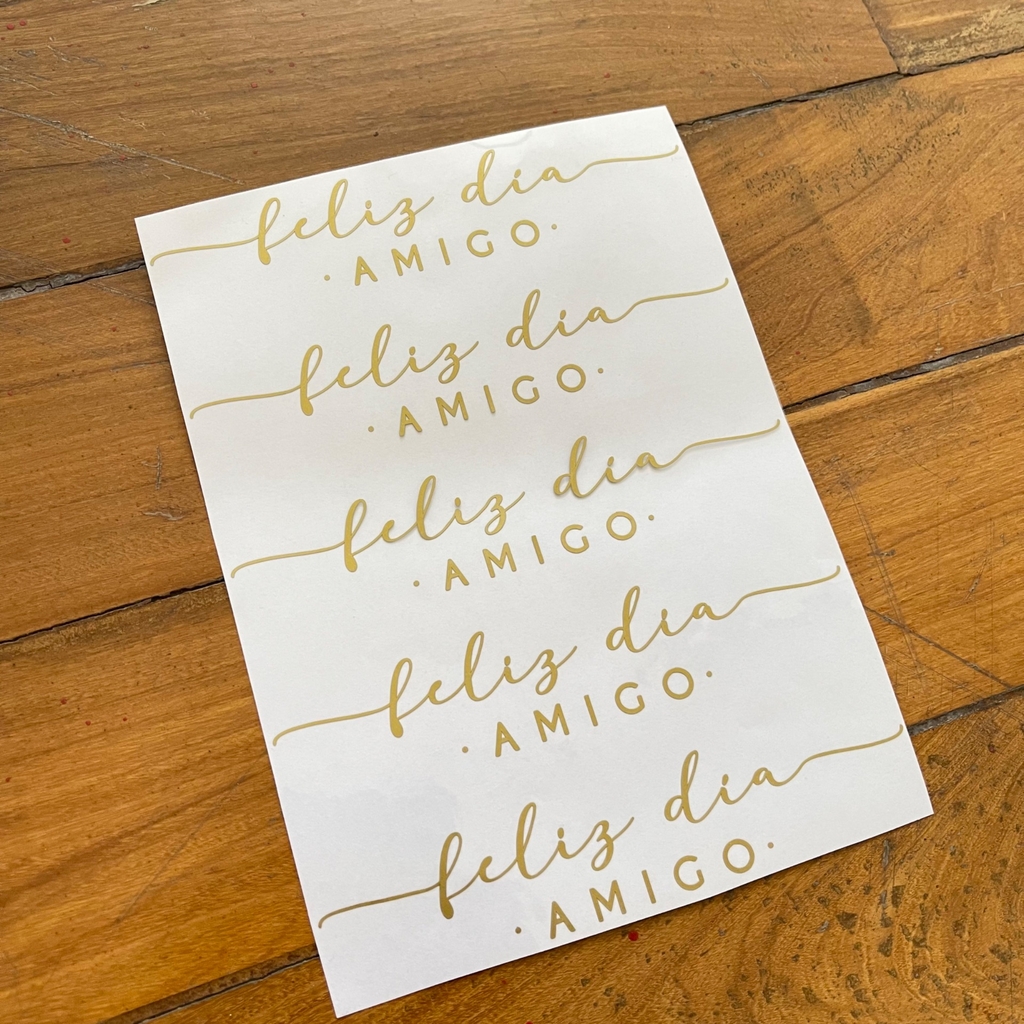 feliz dia
· AMIGO ·
feliz dia
· AMIGO ·
feliz dia
· AMIGO ·
feliz dia
· AMIGO ·
feliz dia
· AMIGO ·